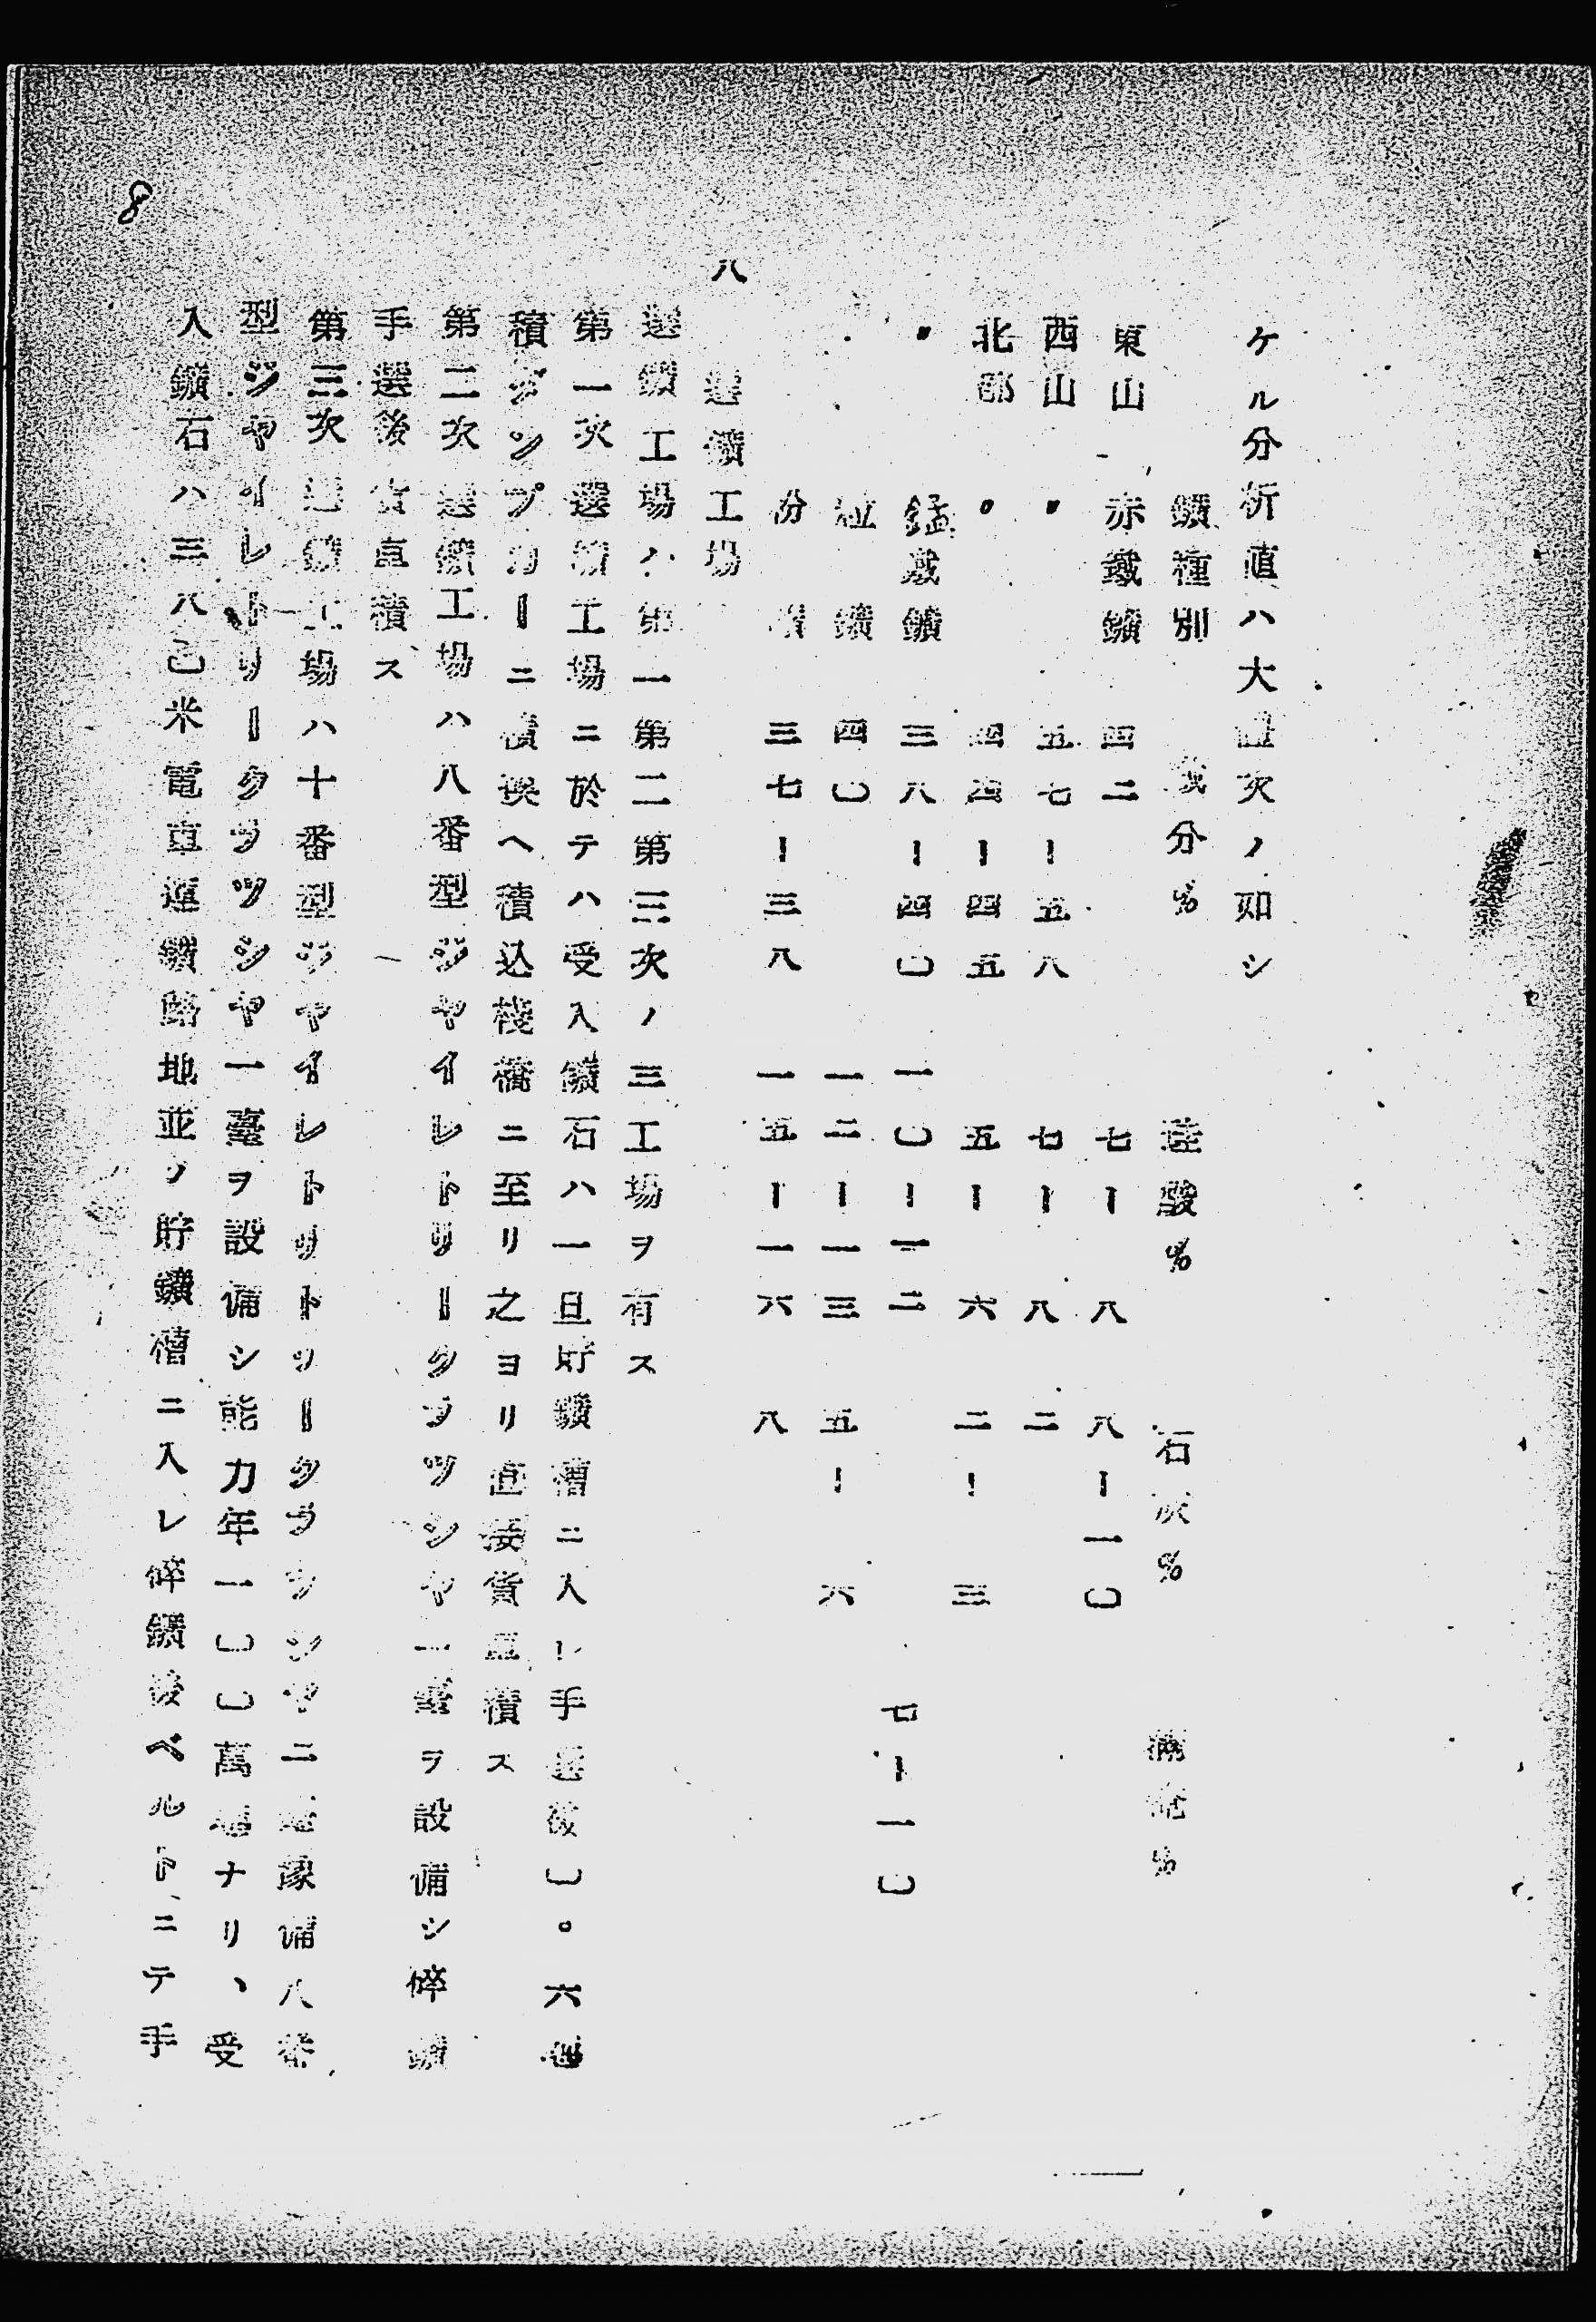 ケル分析値ハ大體次ノ如シ
鑛種別 鐵分% 珪酸% 石灰% 滿俺%
東山 赤鐵鑛 四二 七ー八 八ー一〇
西山 〃 五七ー五八 七ー八 二
北部 〃 四四ー四五 五ー六 二ー三
〃 錳鐵鑛 三八ー四〇 一〇ー一二 七ー一〇
鑛 四〇 一二ー一三 五ー六
粉鑛 三七ー三八 一五ー一六 八
八 選鑛工場
選鑛工場ハ第一第二第三次ノ三工場ヲ有ス
第一次選鑛工場ニ於テハ受入鑛石ハ一旦貯鑛槽ニ入レ手選後〇。六
積ダンプカーニ積換ヘ積込棧橋ニ至リ之ヨリ直接貨車積ス
第二次選鑛工場ハ八番型ジヤイレトリータラツシヤ一臺ヲ設備シ碎鑛
手選後貨車積ス
第三次選鑛工場ハ十番型ジヤイレトリトリータラツシヤ二臺豫備八番
型ジヤイレートリークラツシヤ一臺ヲ設備シ能力年一〇〇萬噸ナリ、受
入鑛石ハ三八己米電車運鑛路地並ノ貯鑛槽ニ入レ碎鑛後ベルトニテ手
8